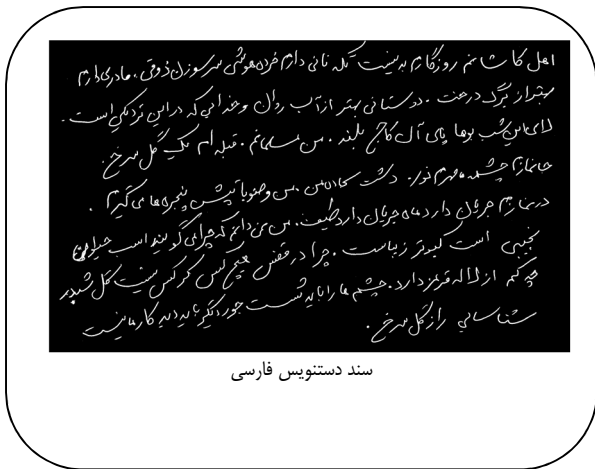 اهل کاشانم روزگارم بد نیست تکه نانی دارم خرده هوشی سر سوزن ذوقی. مادری دارم
بهتر از برگ درخت. دوستانی بهتر از آب روان و خدایی که در این نزدیکی است.
لای این شب بوها پای آن کاج بلند. من مسلمانم. قبله ام یک گل سرخ.
جانمازم چشمه مهرم نور. دشت سجاده من. من وضو با تپش پنجره ها می گیرم.
در نمازم جریان دارد ماه جریان دارد طیف. من نمی دانم که چرا می گویند اسب حیوان
نجیبی است کبوتر زیباست. چرا در قفس هیچ کس کرکس نیست گل شبدر
چه کم از لاله قرمز دارد. چشم ها را باید شست جور دیگر باید دید کار ما نیست
شناسایی راز گل سرخ.
سند دستنویس فارسی